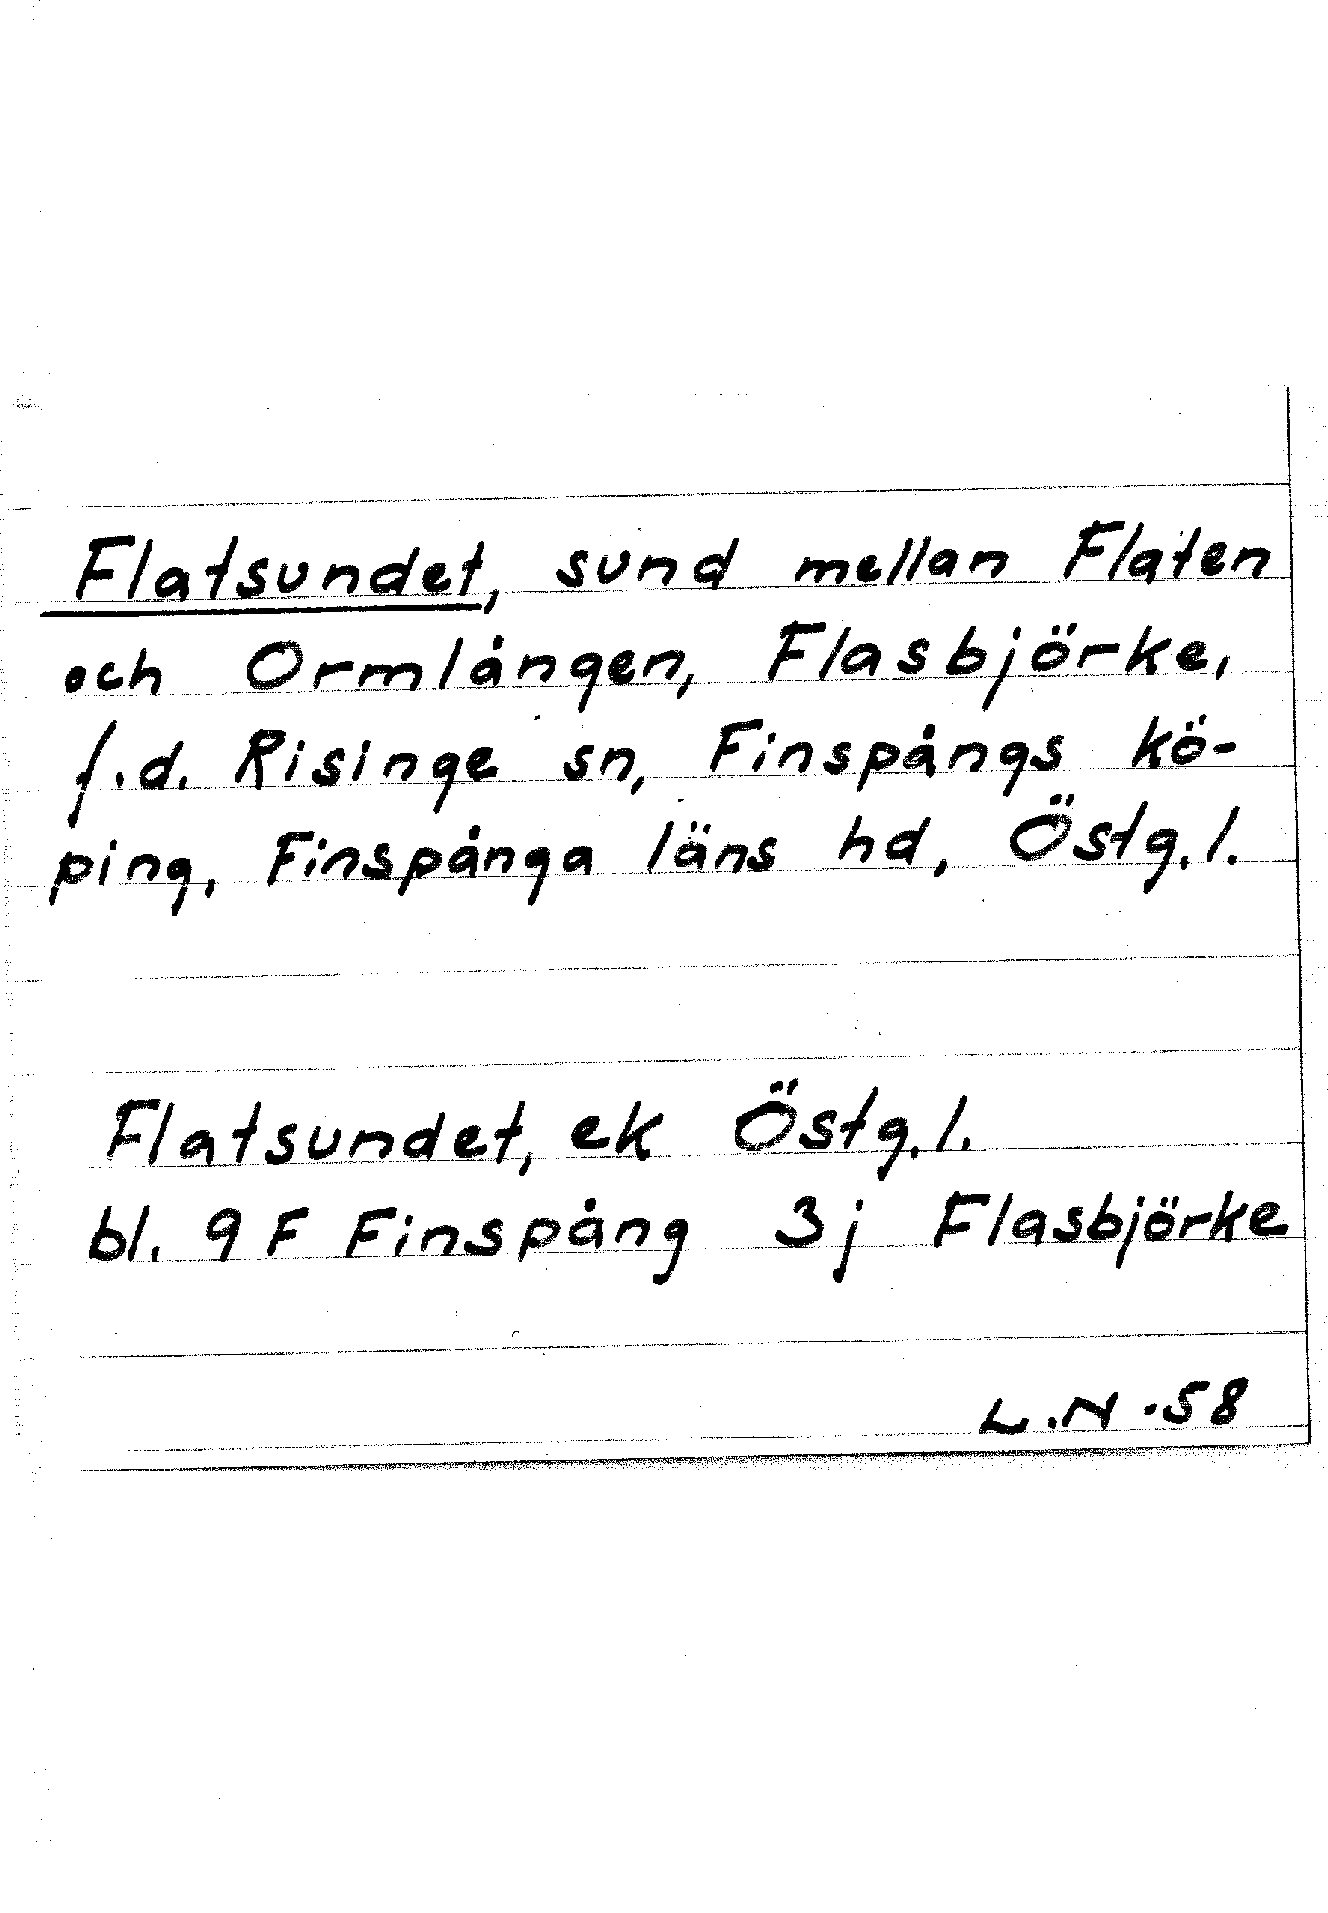 Flatsundet, sund mellan Flaten
och Ormlången, Flasbjörke,
f.d. Risinge sn, Finspångs kö-
ping, Finspånga läns hd, Östg.l.
Flatsundet, ek Östg.l.
bl. 9 F Finspång 3j Flasbjörke
L.N.58